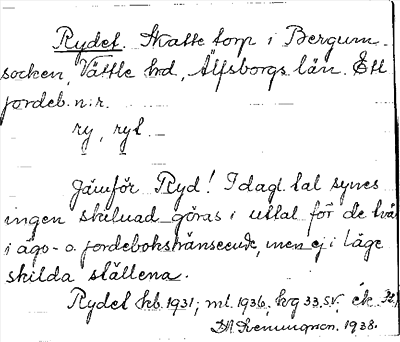 Rydet. Skatte torp i Bergum
socken, Vättle hrd, Älfsborgs län. Ett
jordeb. n:r.
ry, ryt
Jämför Ryd! I dagl. tal synes
ingen skilnad göras i uttal för de två
i ägo- o. jordebokshänseende, men ej i läge
skilda ställena.
Rydet kb. 1931; ml. 1936, hrg 33.SV. ek.
1938.